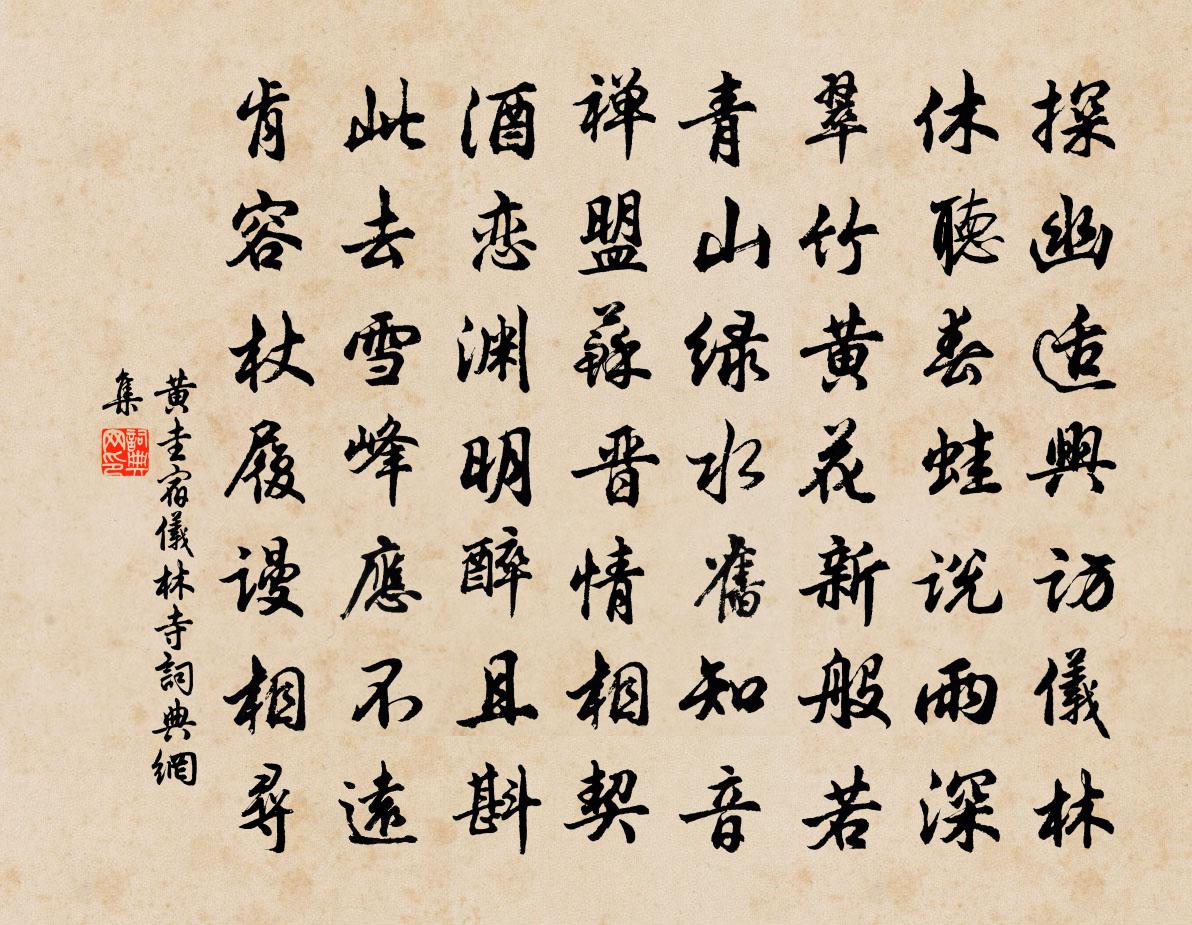 探幽适興訪儀林
休聽春蛙説雨深
翠竹黄花新般若
青山緑水舊知音
禅盟蘇晋情相契
酒恋渊明醉且斟
此去雪峰應不遠
肯容杖履谩相尋
黄圭宿儀林寺詞典網
集
詞典
网印